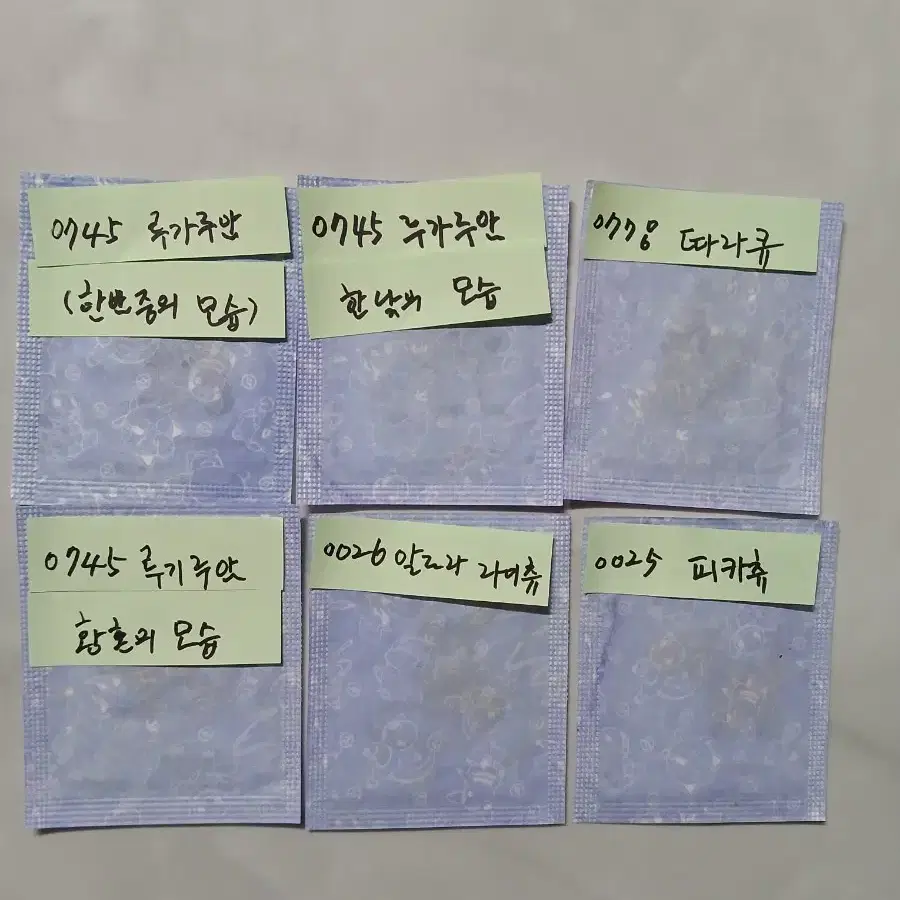 0745 루가루암
(한밤중의 모습)
0745 루가루암
한낮의 모습
0778 따라큐
0745 루가루암
황혼의 모습
0026 알로라 라이츄
0025 피카츄